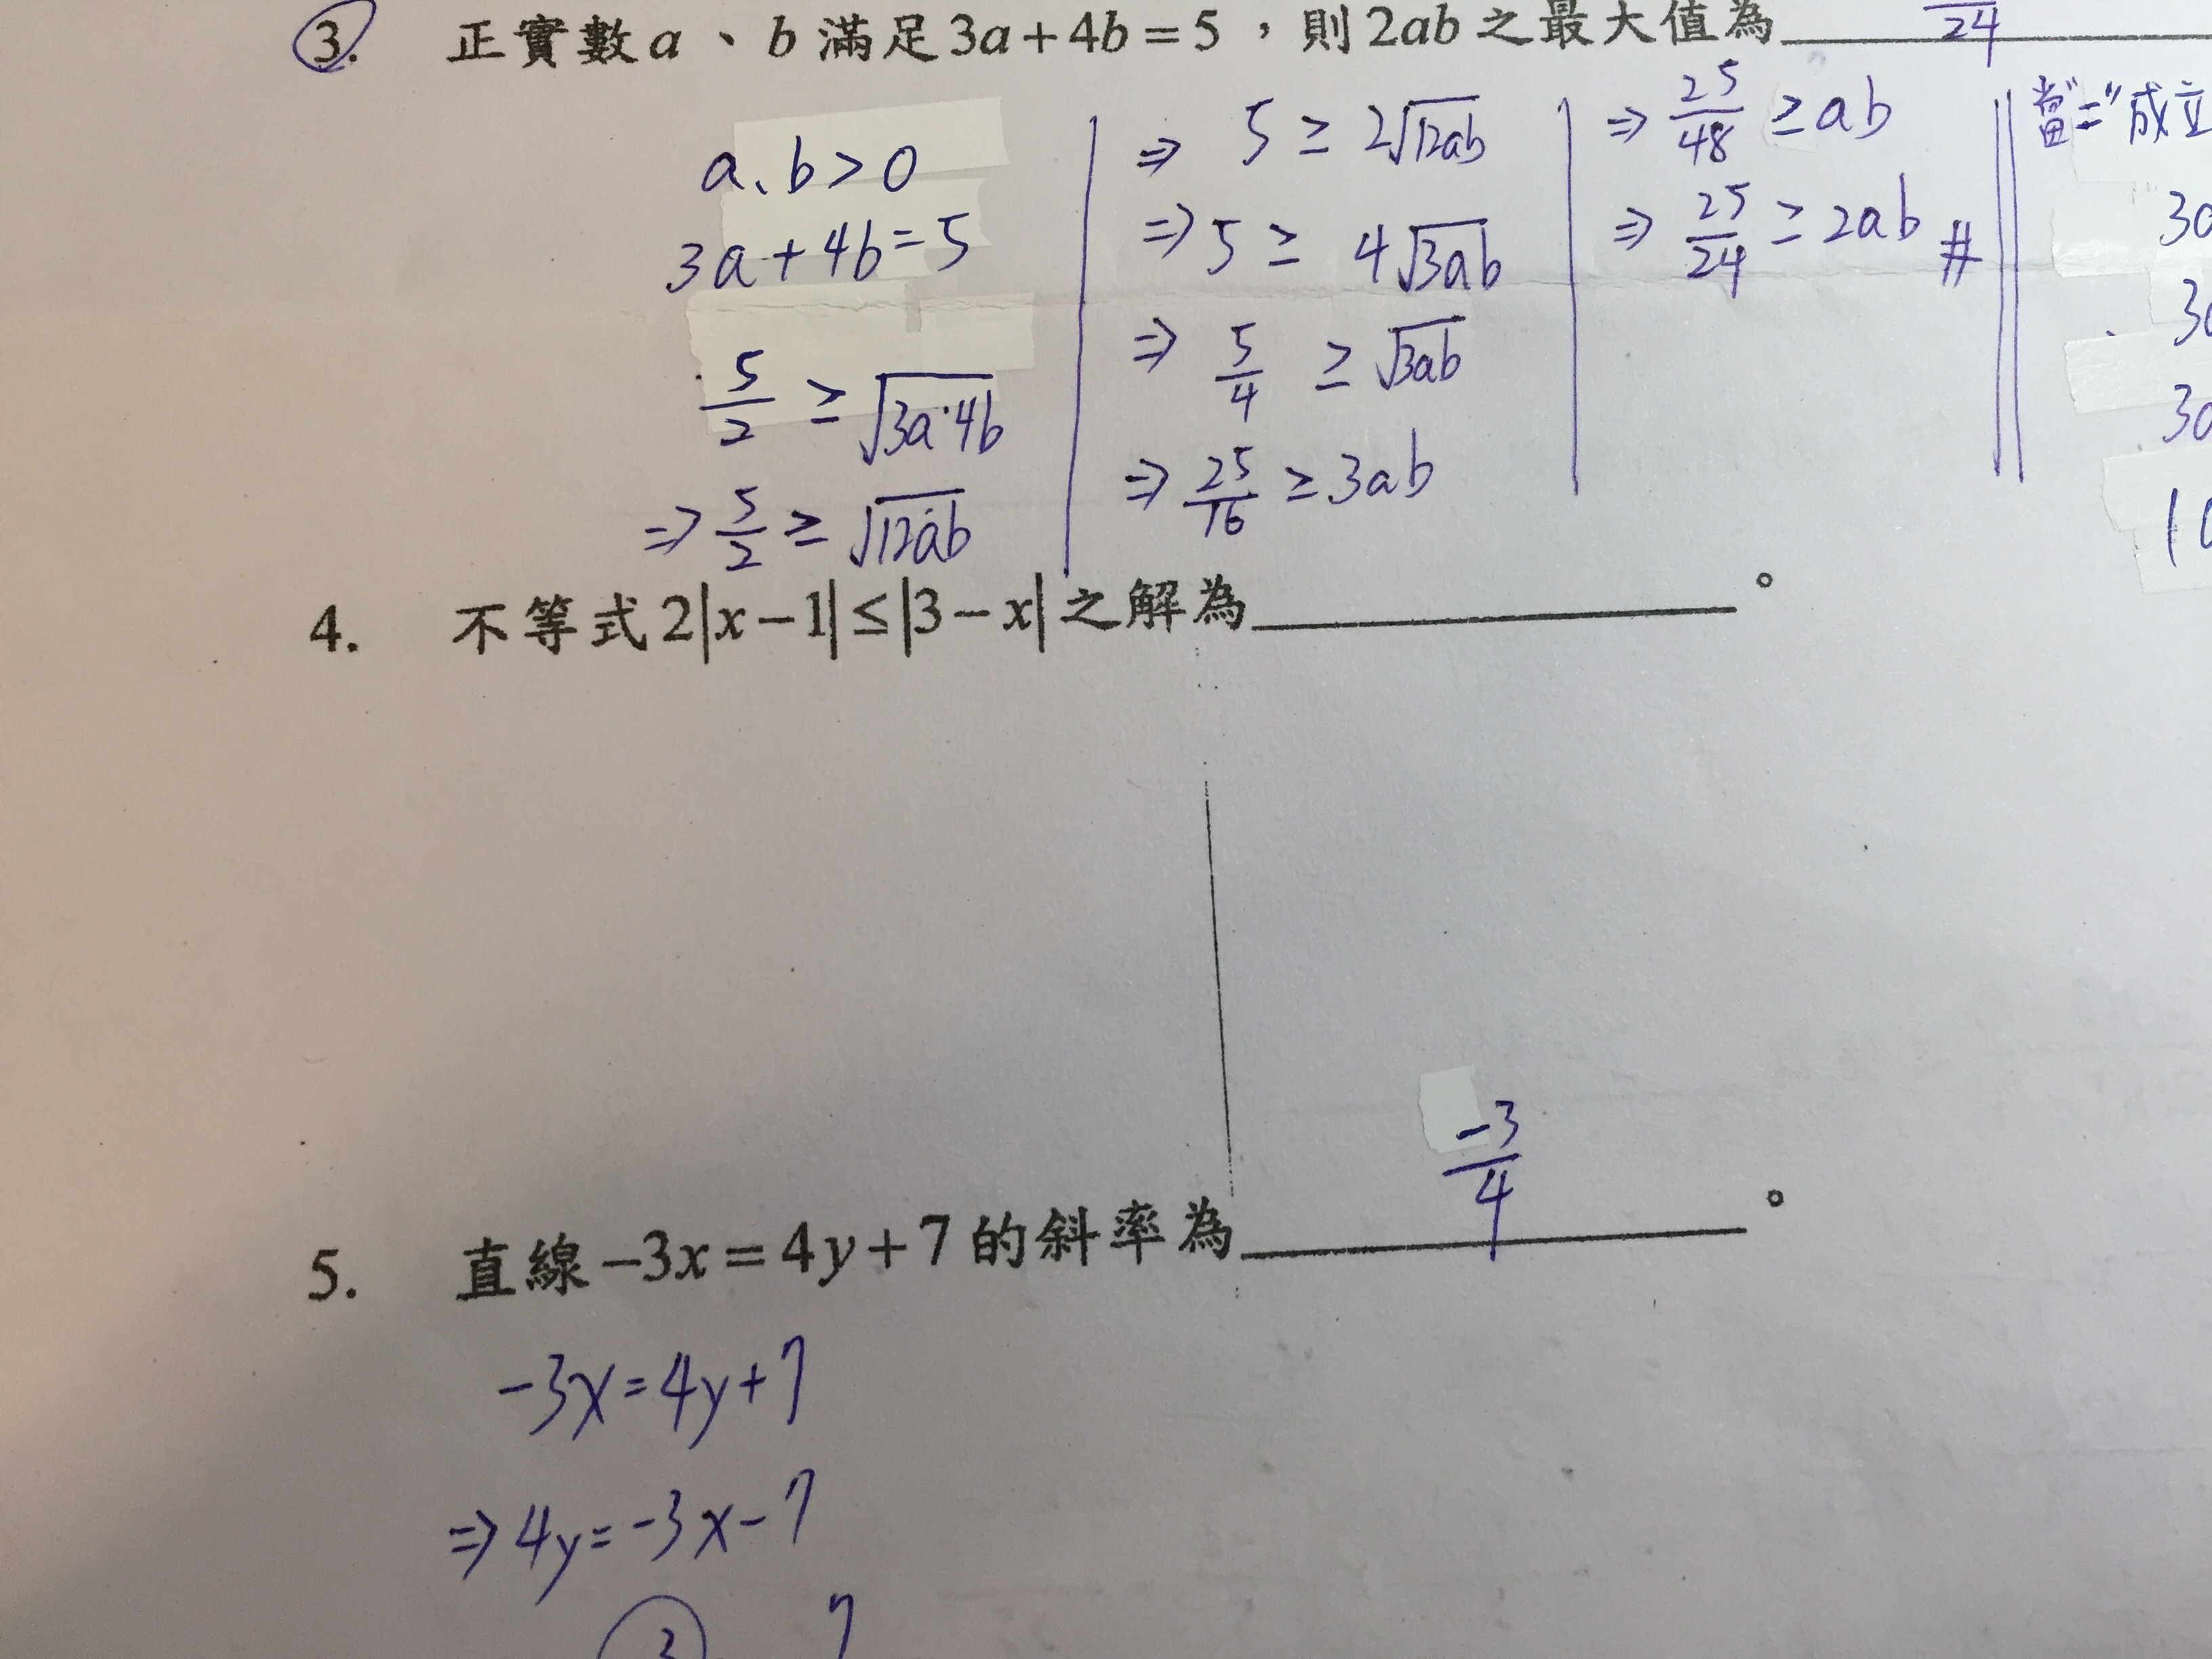 3. 正實數a、b滿足3a+4b=5,則2ab之最大值為 24
a、b>0
3a+4b=5
5/2 ≥ √(3a·4b)
⇒ 5/2 ≥ √(12ab)
⇒ 5 ≥ 2√(12ab)
⇒ 5 ≥ 4√(3ab)
⇒ 5/4 ≥ √(3ab)
⇒ 25/16 ≥ 3ab
⇒ 25/48 ≥ ab
⇒ 25/24 ≥ 2ab #
當"="成立
3a
3a
3a
4. 不等式2|x-1|≤|3-x|之解為。
5. 直線-3x=4y+7的斜率為 -3/4。
-3x=4y+7
⇒ 4y=-3x-7